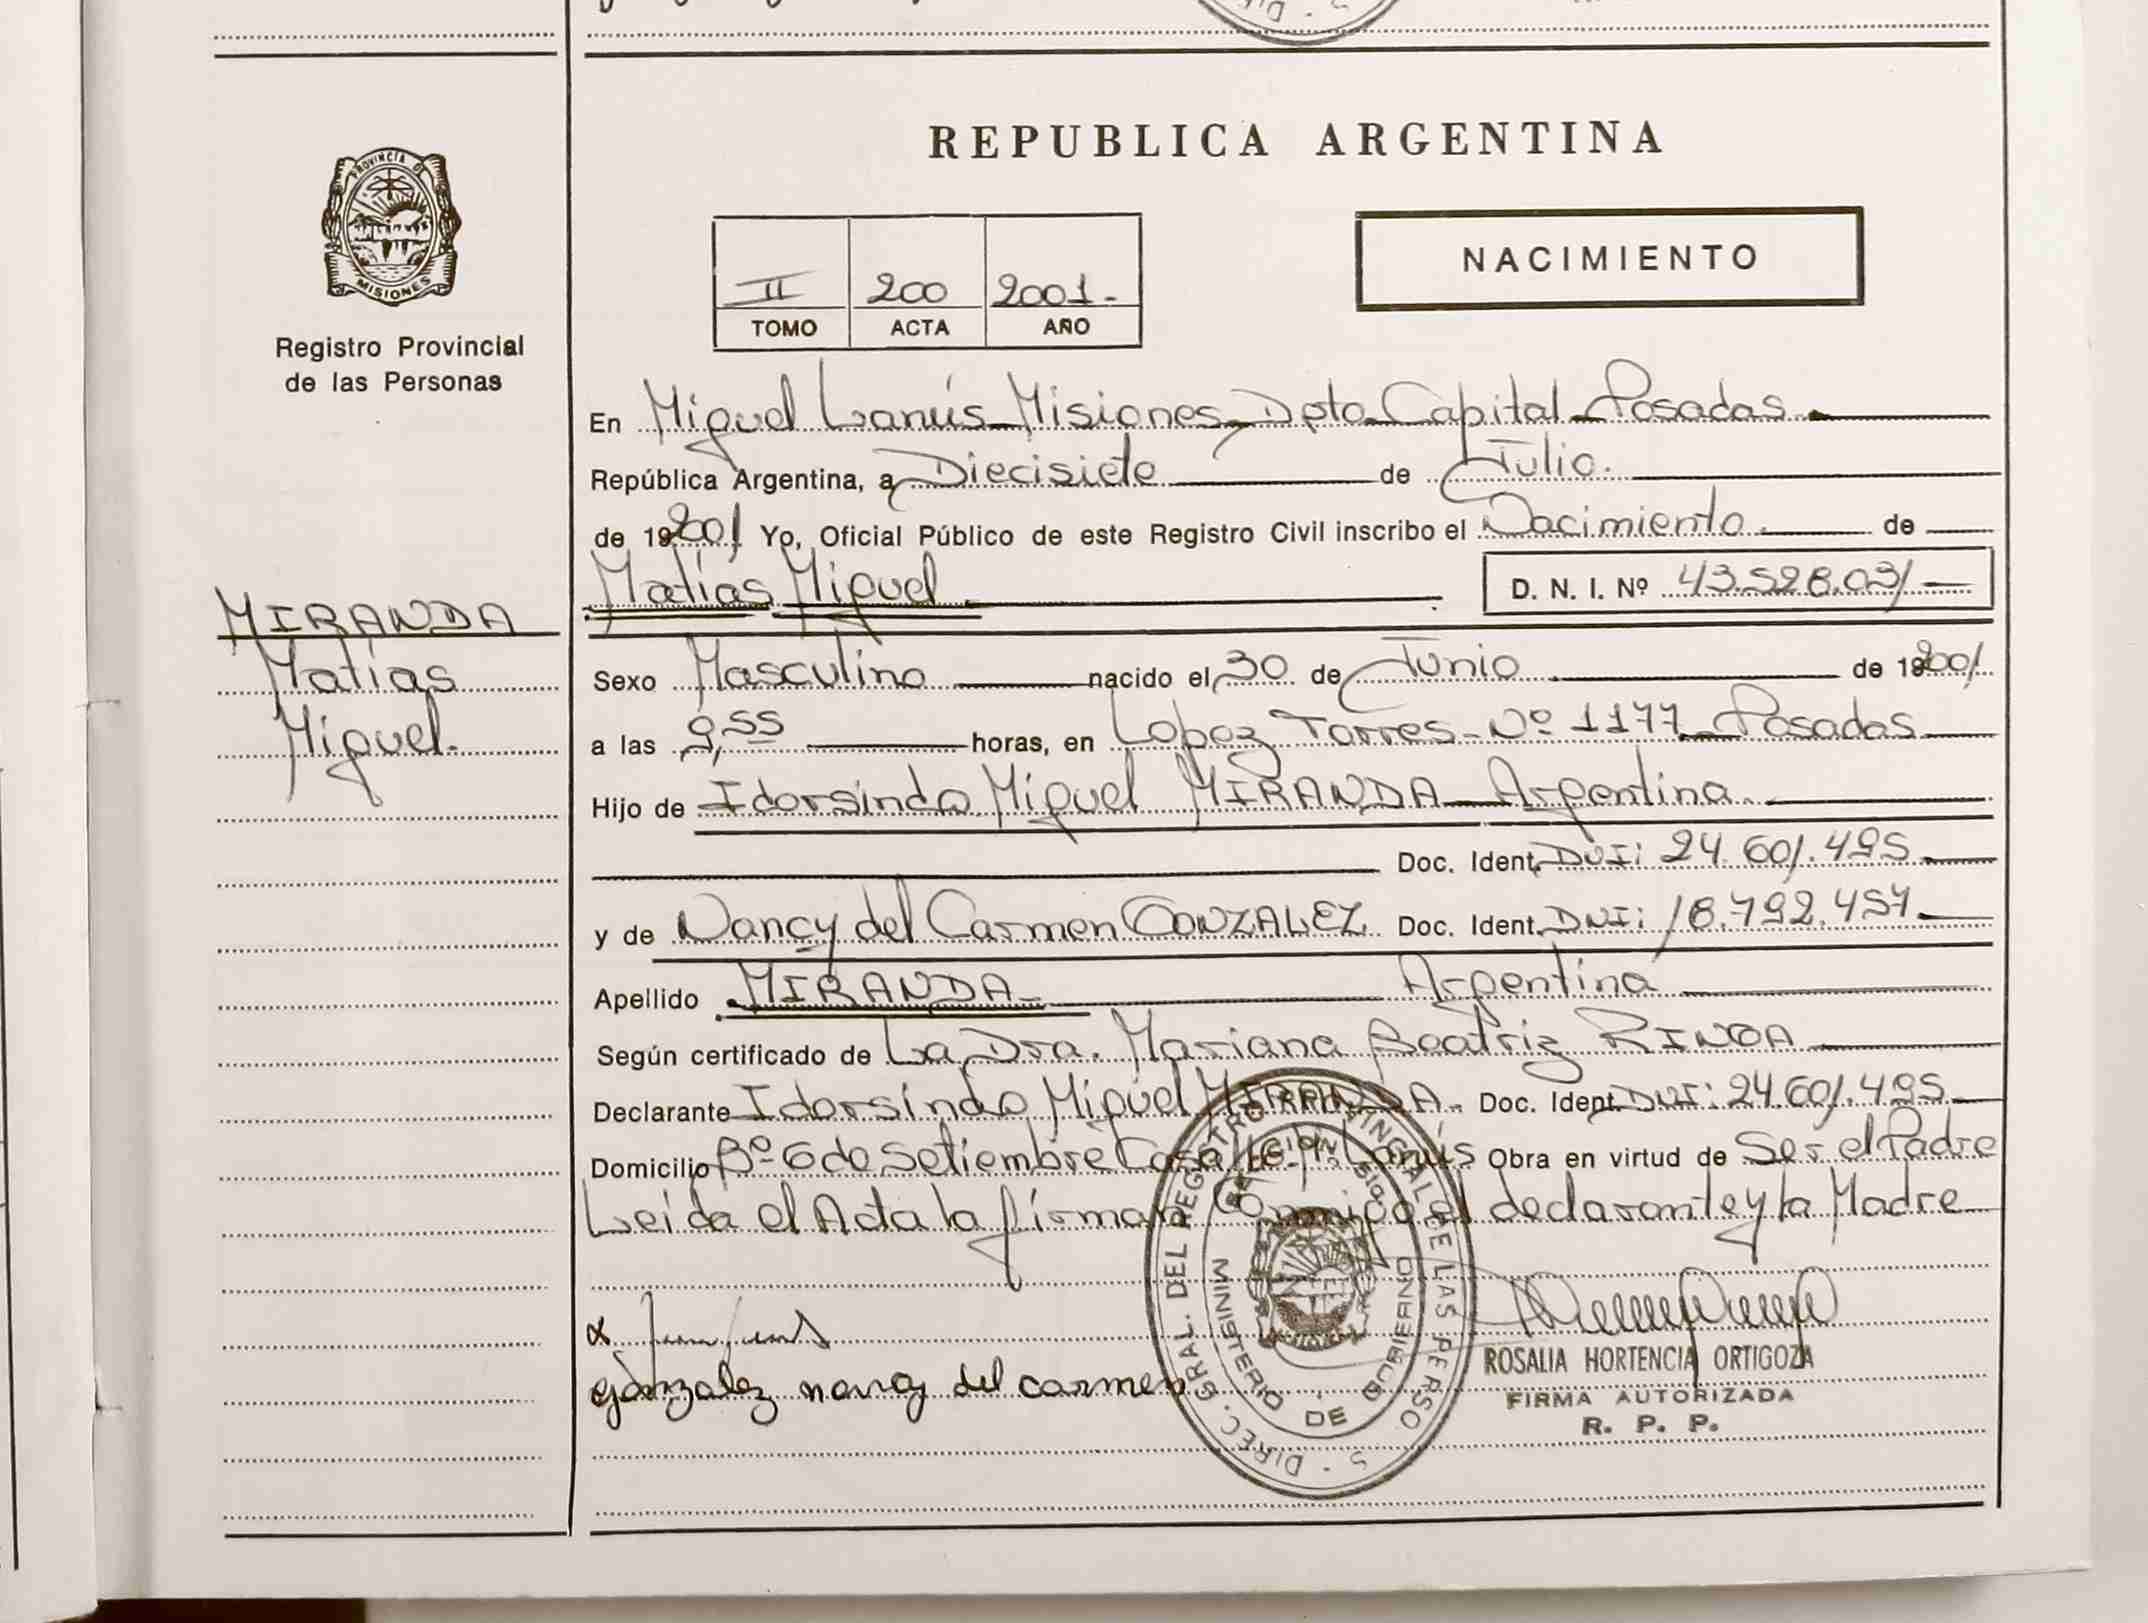 PROVINCIA DE
MISIONES
Registro Provincial
de las Personas
MIRANDA
Matías
Miguel.
REPUBLICA ARGENTINA
II 200 2001.-
TOMO ACTA AÑO
NACIMIENTO
En Miguel Lanús Misiones, Dpto Capital Posadas
República Argentina, a Diecisiete de Julio.
de 192001 Yo, Oficial Público de este Registro Civil inscribo el Nacimiento. de
Matías Miguel D. N. I. Nº 43.528.031
Sexo Masculino nacido el 30 de Junio de 192001.
a las 9,55 horas, en Lopez Torres - Nº 1177 Posadas
Hijo de Idorsindo Miguel MIRANDA Argentina.
Doc. Ident. DNI: 24.601.495
y de Nancy del Carmen GONZALEZ Doc. Ident. DNI: 18.792.457
Apellido MIRANDA Argentina
Según certificado de La Dra. Mariana Beatriz
Declarante Idorsindo Miguel MIRANDA. Doc. Ident. DNI: 24.601.495
Domicilio Bº 6 de Setiembre Casa Lanús Obra en virtud de Ser el Padre
Leida el Acta la firman Conmigo el declarante y la Madre
gonzalez nancy del carmen
DIREC. GRAL. DEL REGISTRO PROVINCIAL DE LAS PERSO S
MINISTERIO DE GOBIERNO
ROSALIA HORTENCIA ORTIGOZA
FIRMA AUTORIZADA
R. P. P.